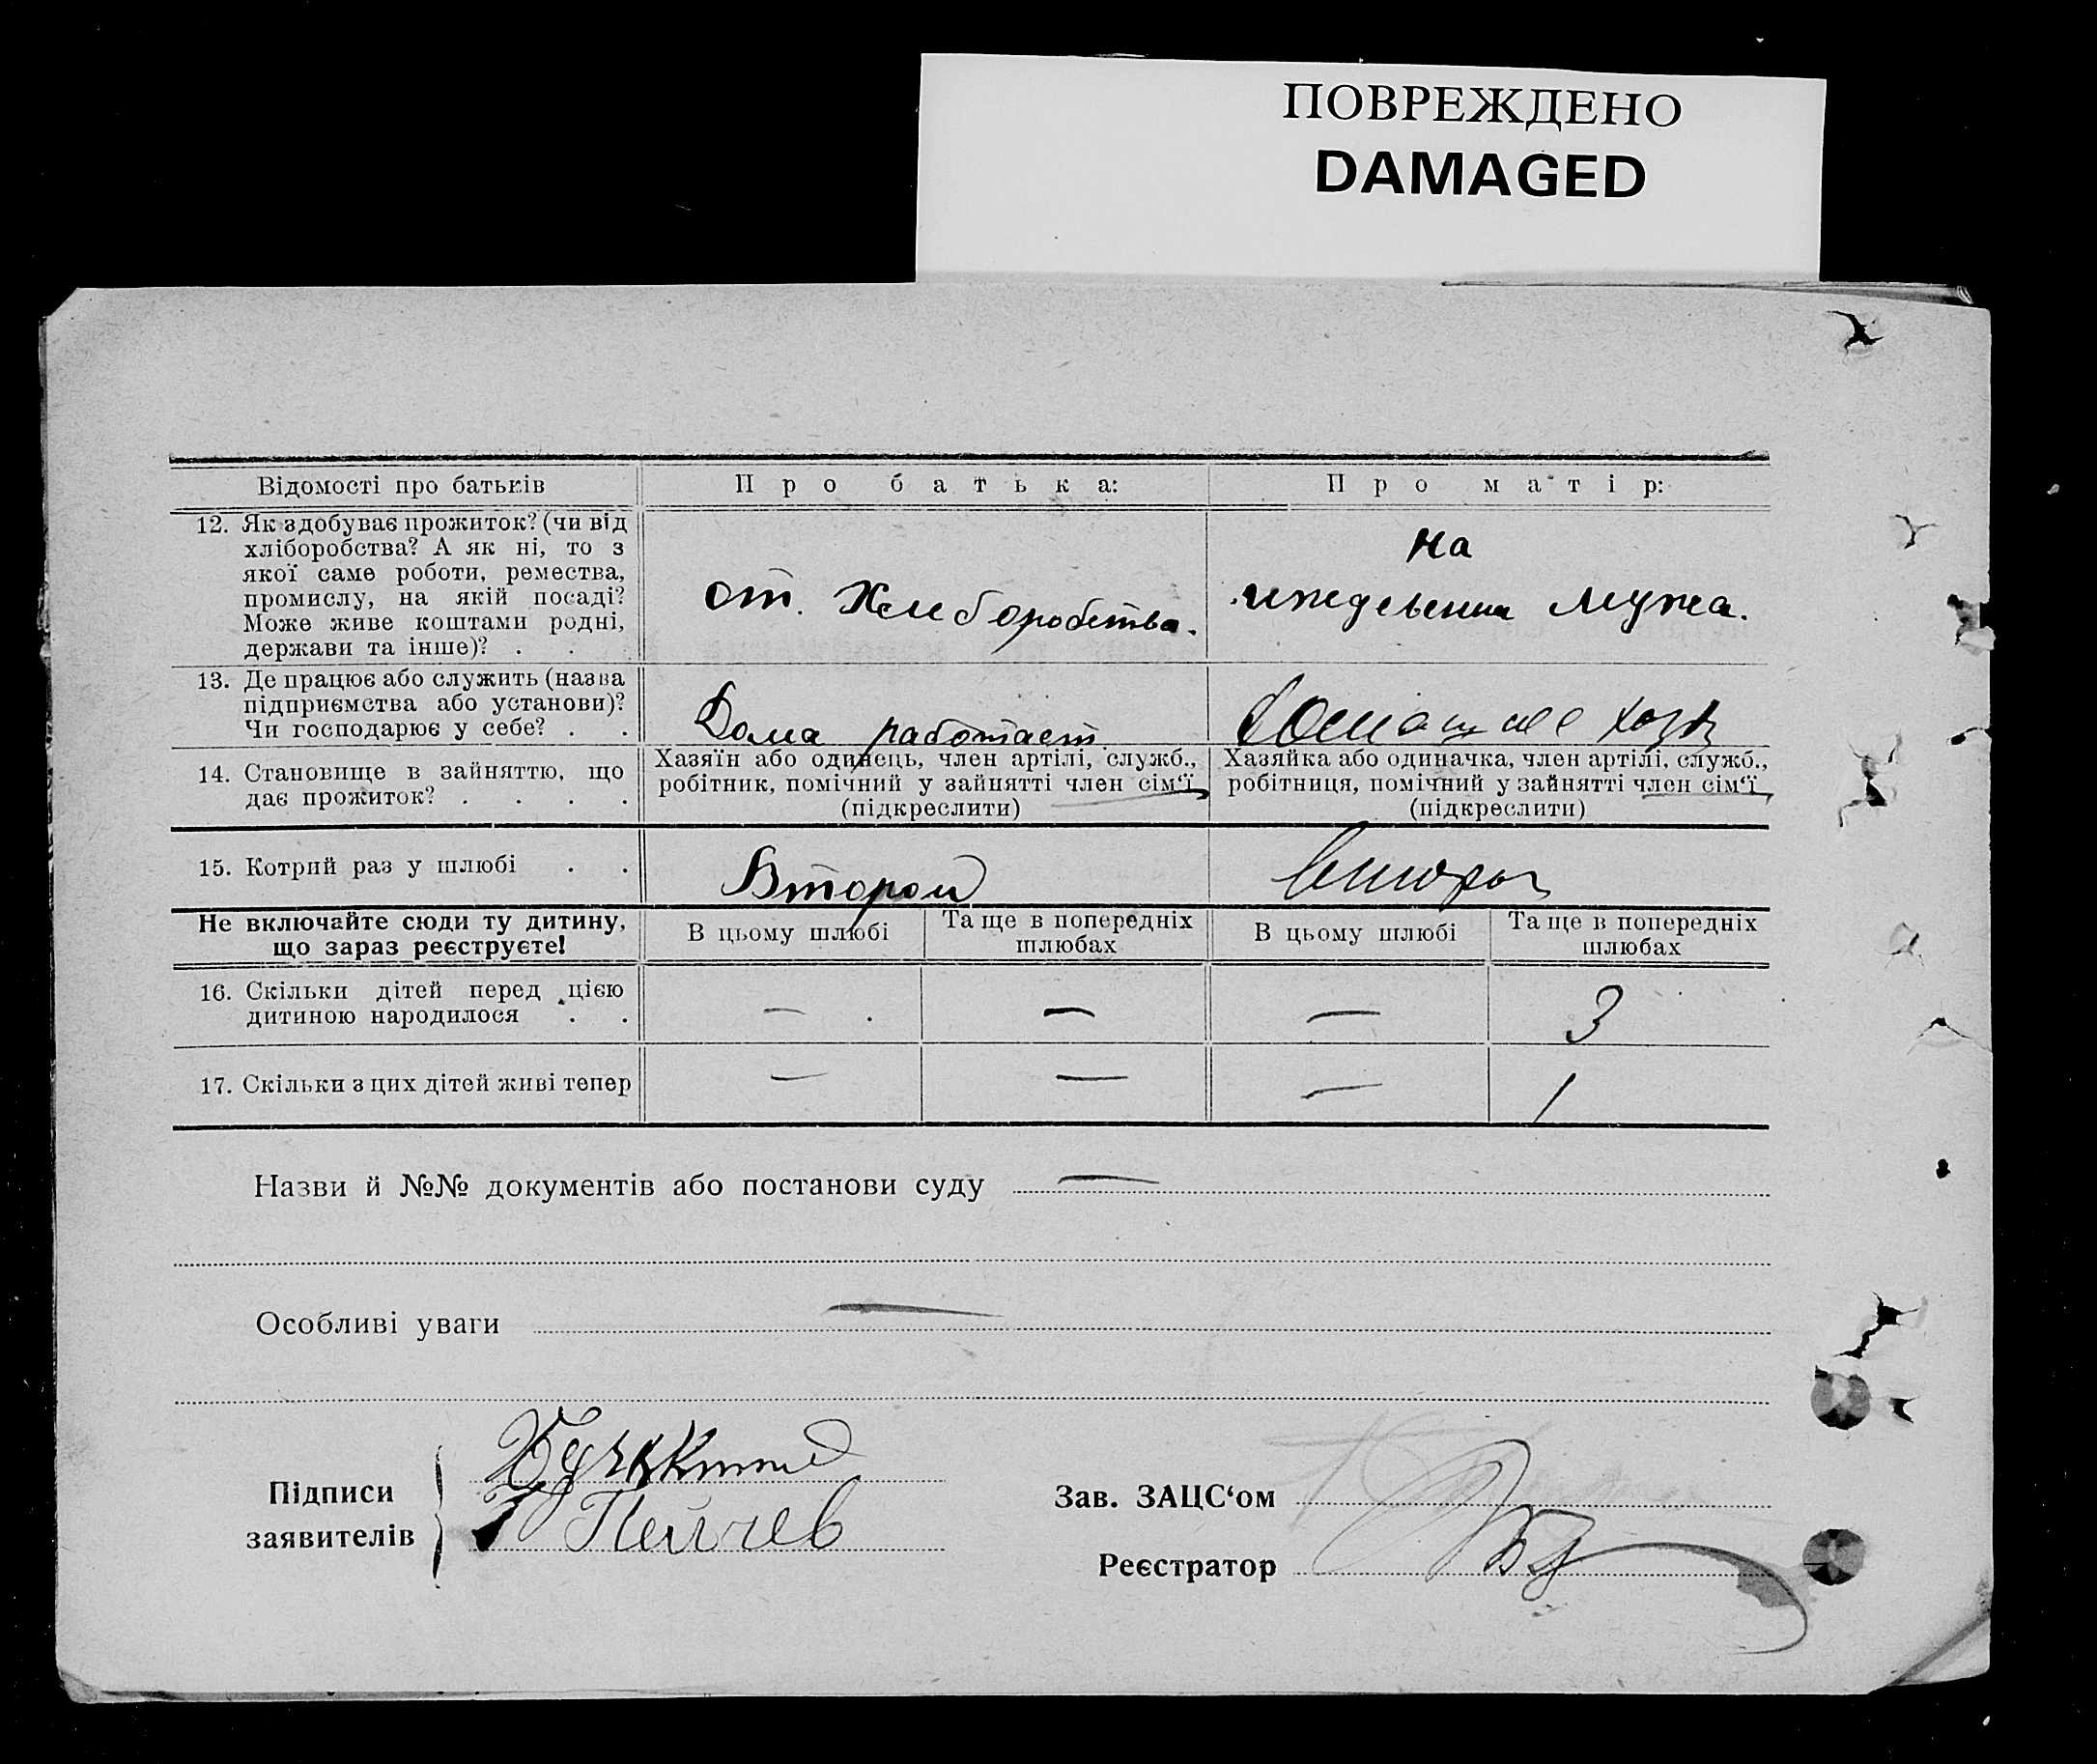 ПОВРЕЖДЕНО
DAMAGED
Відомості про батьків
Про батька:
Про матір:
12. Як здобуває прожиток? (чи від
хліборобства? А як ні, то з
якої саме роботи, ремества,
промислу, на якій посаді?
Може живе коштами родні,
держави та інше)? . .
от. Хлиборобства.
на
иждевении мужа.
13. Де працює або служить (назва
підприємства або установи)?
Чи господарює у себе? . .
Дома работает
14. Становище в зайняттю, що
дає прожиток? . . . .
Хазяїн або одинець, член артілі, служб.,
робітник, помічний у зайнятті член сім‘ї
(підкреслити)
Хазяйка або одиначка, член артілі, служб.,
робітниця, помічний у зайнятті член сім‘ї
(підкреслити)
15. Котрий раз у шлюбі . .
Второй
Не включайте сюди ту дитину,
що зараз реєструєте!
В цьому шлюбі
Та ще в попередніх
шлюбах
В цьому шлюбі
Та ще в попередніх
шлюбах
16. Скільки дітей перед цією
дитиною народилося . .
— — — 3
17. Скільки з цих дітей живі тепер
— — — 1
Назви й №№ документів або постанови суду —
Особливі уваги —
Підписи
заявителів
Пейчев
Зав. ЗАЦС‘ом
Реєстратор